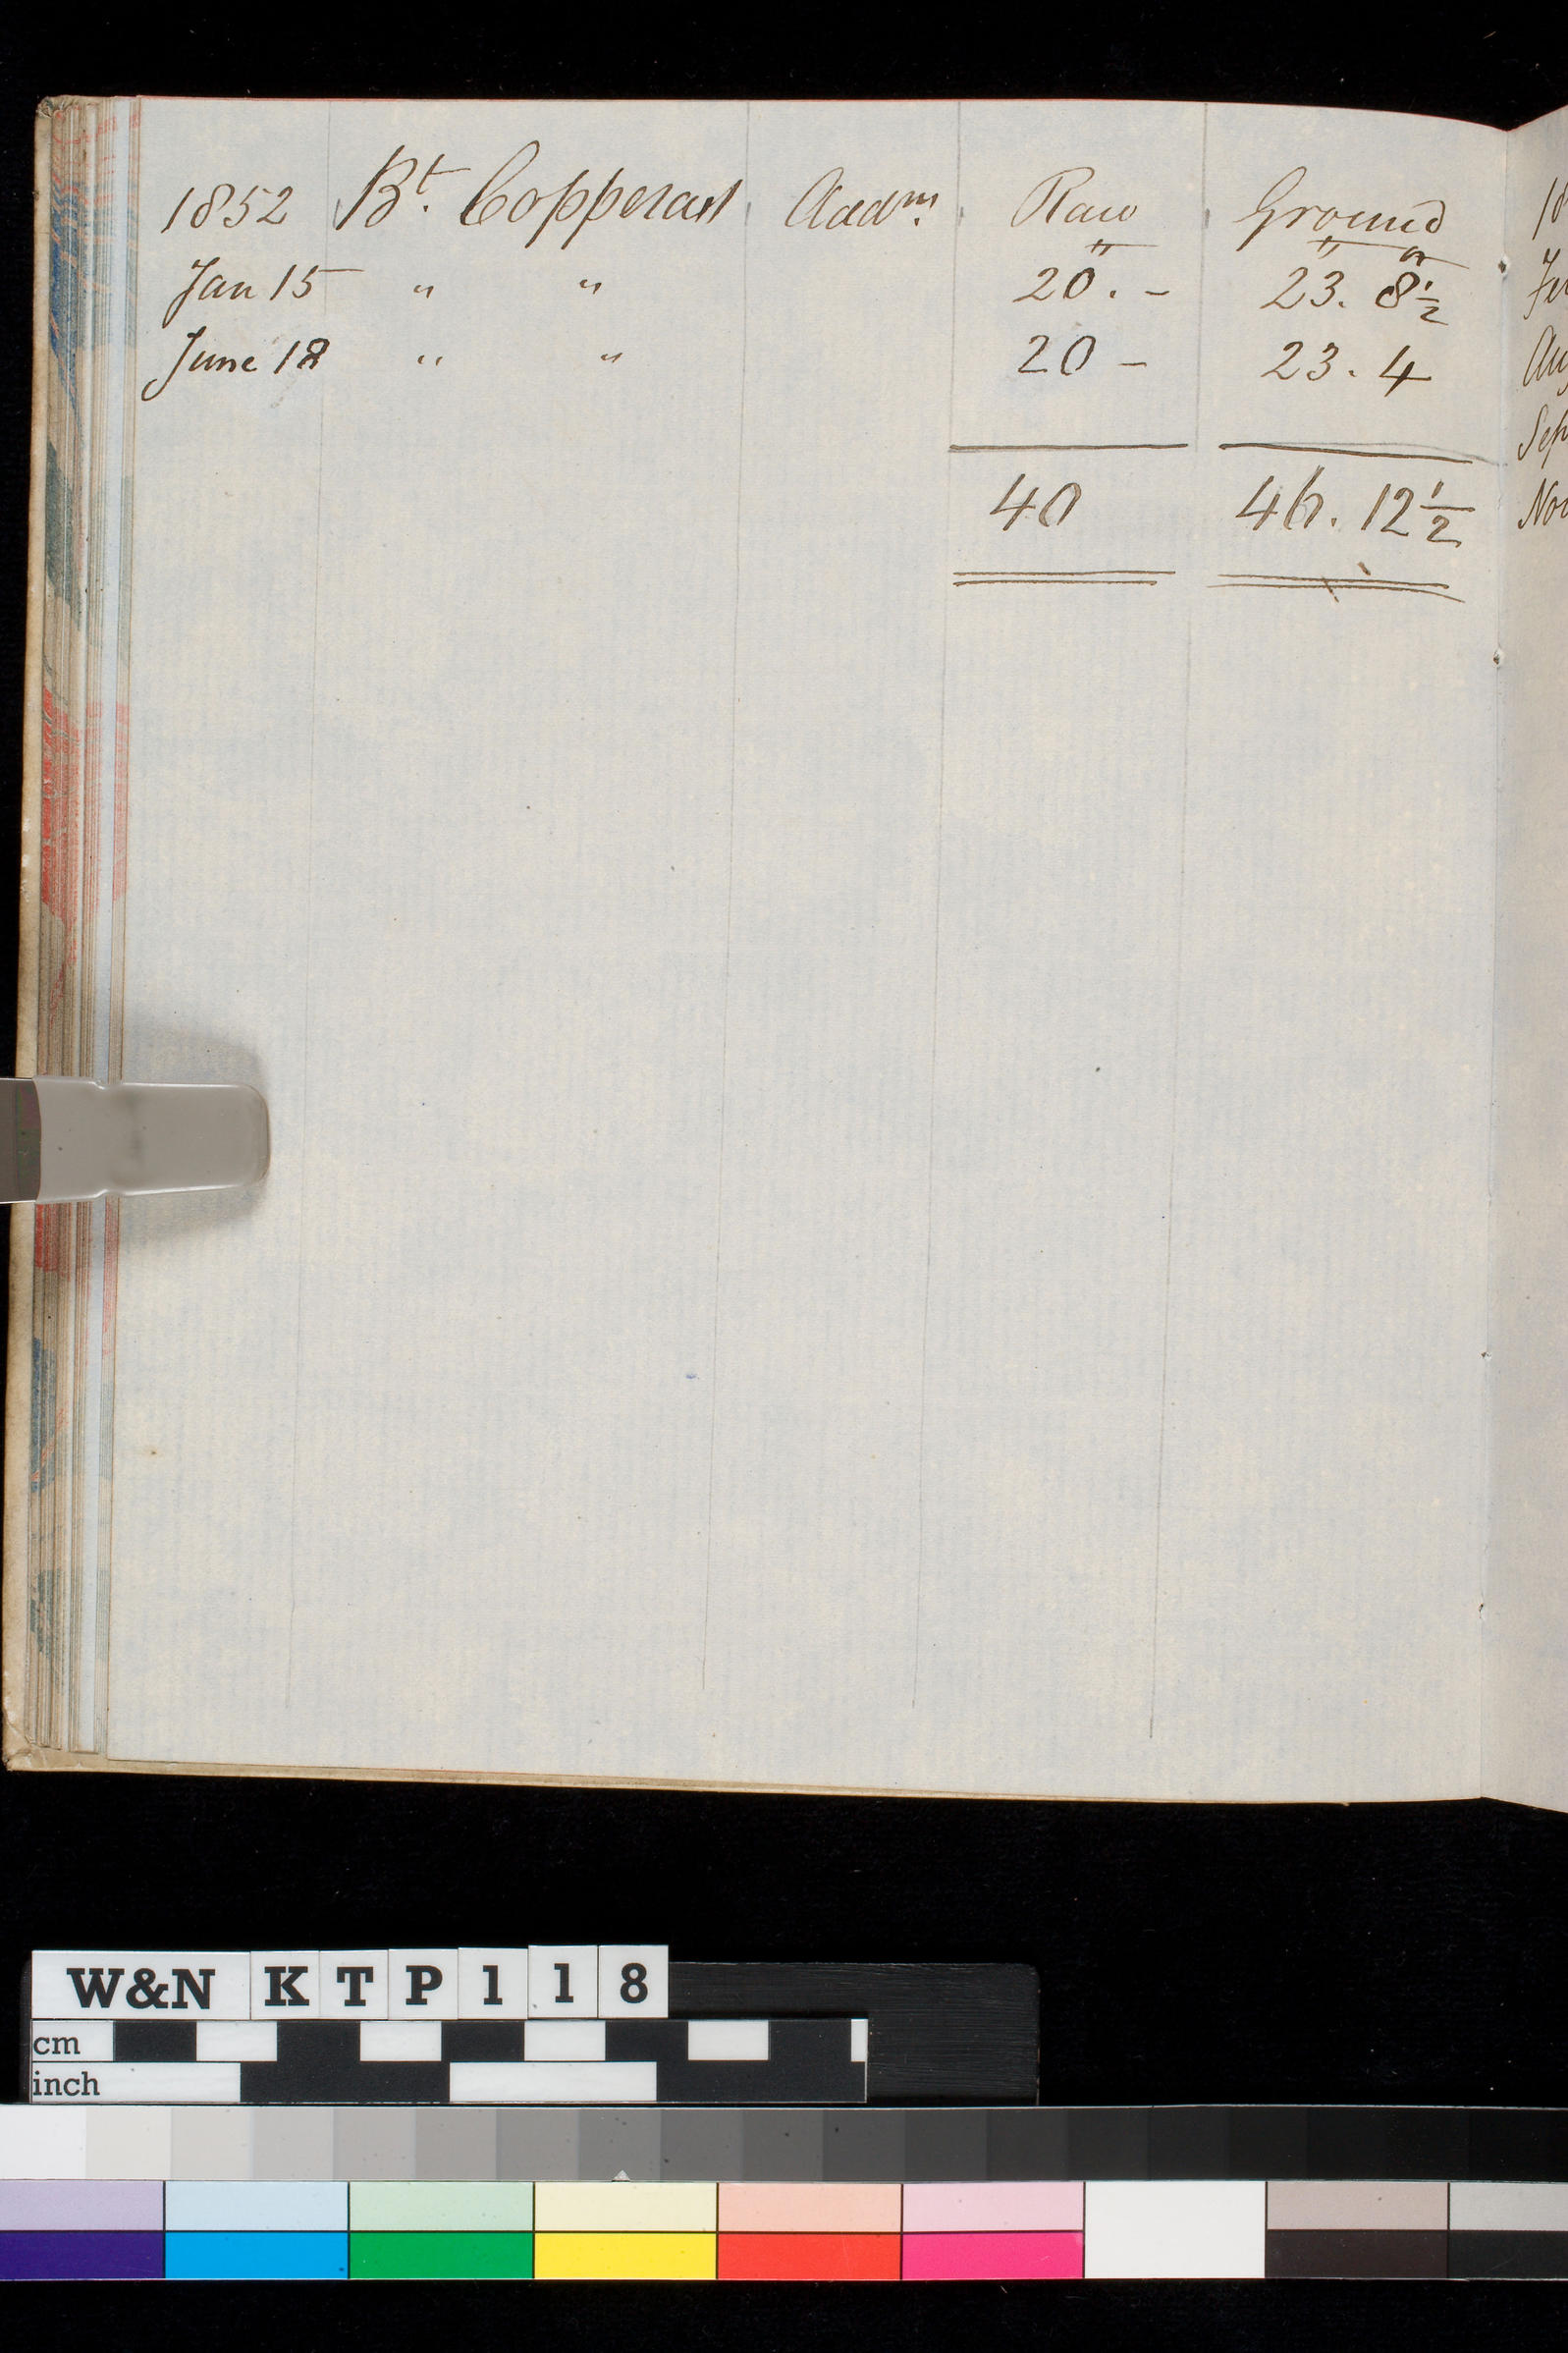 1852 Bt. Copperas Addns. Raw Ground
Jan 15 " " 20. - 23. 8½
June 18 " " 20 - 23. 4
40 46. 12½
18
Au
Sep
Nov
W&N K T P 1 1 8
cm
inch